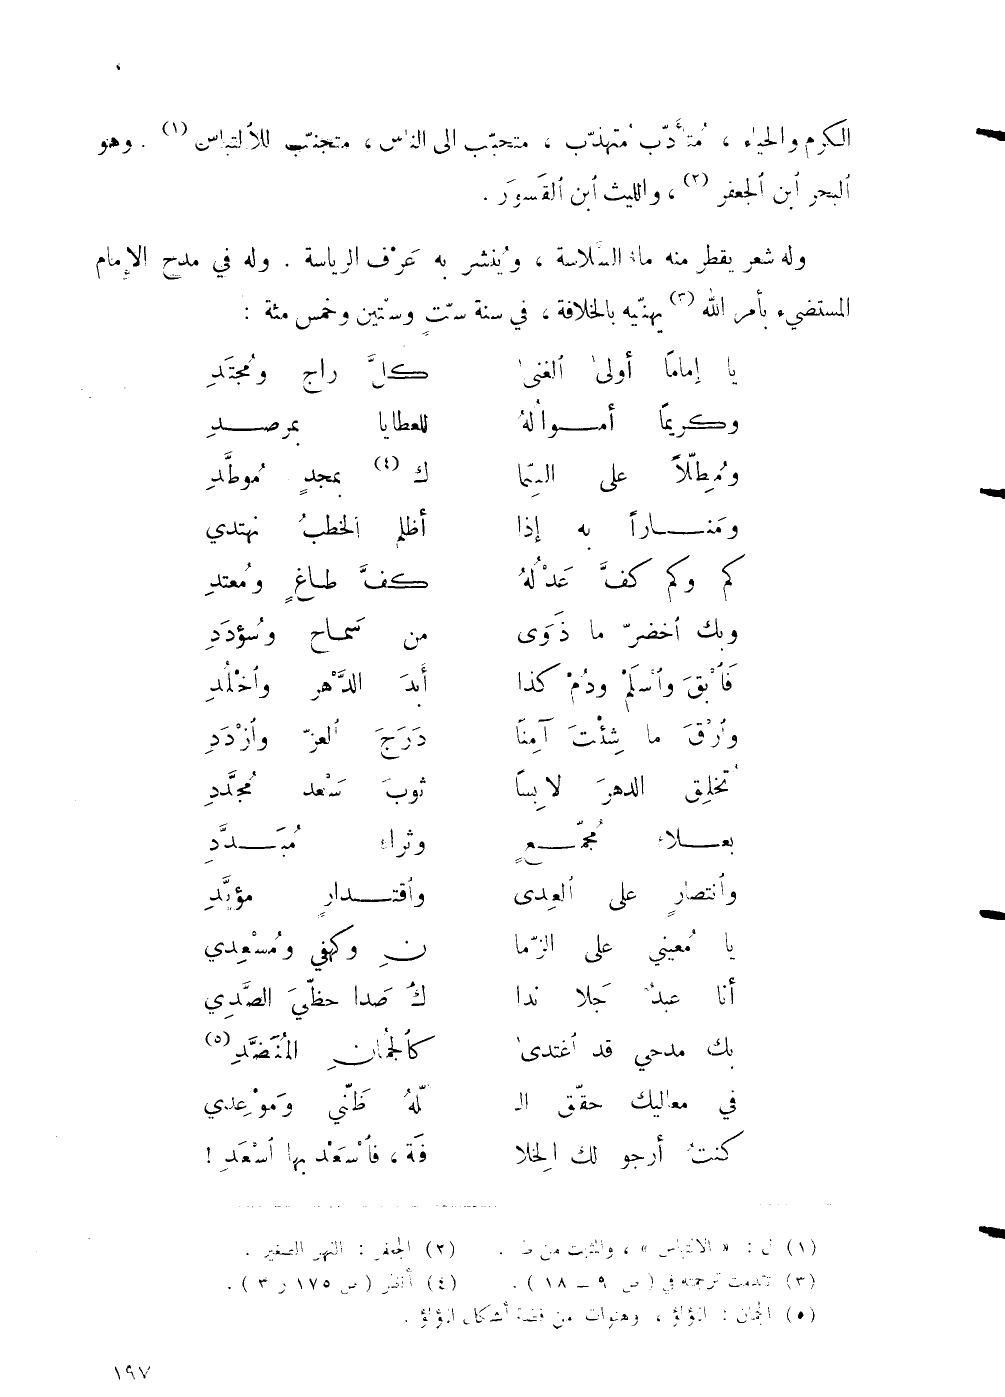 الكرم والحياء ، مُتأَدّب مُتهذّب ، متحبّب الى الناس ، متجنّب للألتباس (١) . وهو
ٱلبحر ٱبن ٱلجعفر (٢) ، والليث ٱبن ٱلقَسوَر .
وله شعر يقطر منه ماء السَّلاسة ، ويُنشر به عَرْف الرياسة . وله في مدح الإمام
المستضيء بأمر الله (٣) يهنّيه بالخلافة ، في سنة ستٍّ وستّين وخمس مئة :
يا إمامًا أولىٰ ٱلغنىٰ كلَّ راج ومُجتَدِ
وكريمًا أمـوالُهُ للعطايا بمرصـدِ
ومُطِلّاً على السّما ك (٤) بمجدٍ مُوطَّدِ
ومَنـاراً به إذا أظلم ٱلخطبُ نهتدي
كم وكم كفَّ عَدْلُهُ كفَّ طـاغٍ ومُعتدِ
وبك ٱخضرّ ما ذَوَى من سَمـاح وسُؤدَدِ
فَٱبْقَ وٱسْلَمْ ودُمْ كذا أَبدَ الدَّهْر وٱخْلُدِ
وٱرْقَ ما شِئْتَ آمِنًا دَرَجَ ٱلعزّ وٱزْدَدِ
تُخلِق الدهرَ لابِسًا ثوبَ سَعْد مُجدَّدِ
بعـلاء مُجمّـعٍ وثراء مُبَـدَّدِ
وٱنتصارٍ على ٱلعِدى وٱقتـدارٍ مؤيَّدِ
يا مُعيني على الزّما نِ وكهفي ومُسْعِدي
أنا عبدٌ جَلا ندا كَ صَدا حظّيَ الصَّدِي
بك مدحي قد ٱغتدىٰ كٱلجُمانِ المُنَضَّدِ (٥)
في معاليك حقّق الـ لّهُ ظَنّي ومَوْعِدي
كنتُ أرجو لك الخِلا فَة ، فٱسْعَدْ بها ٱسْعَدِ !
(١) ل : « الاقتباس » ، والمثبت من ط . (٢) الجعفر : النهر الصغير .
(٣) تقدمت ترجمته في ( ص ٩ ـ ١٨ ) . (٤) أنظر ( ص ١٧٥ ر ٣ ) .
(٥) الجمان : اللؤلؤ ، وهنوات من فضة أشكال اللؤلؤ .
١٩٧